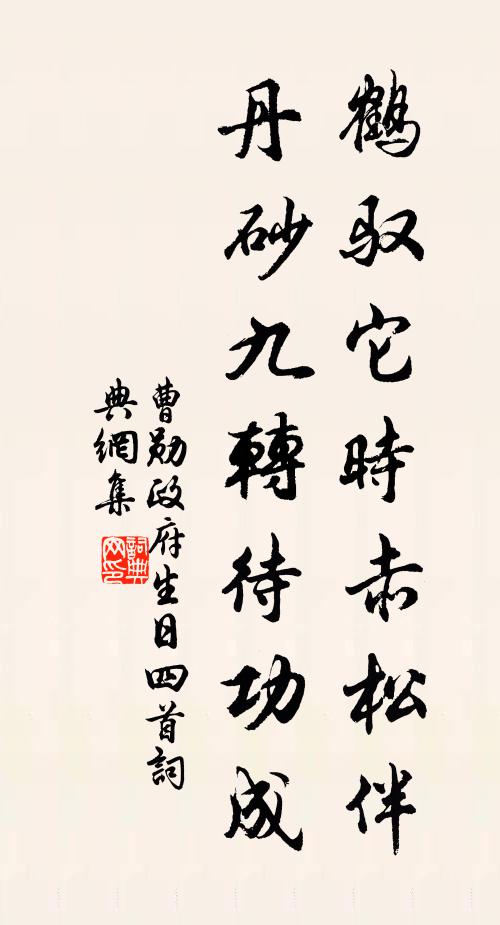 鶴驭它時赤松伴
丹砂九轉待功成
曹勛政府生日四首詞
典網集
詞典
网印